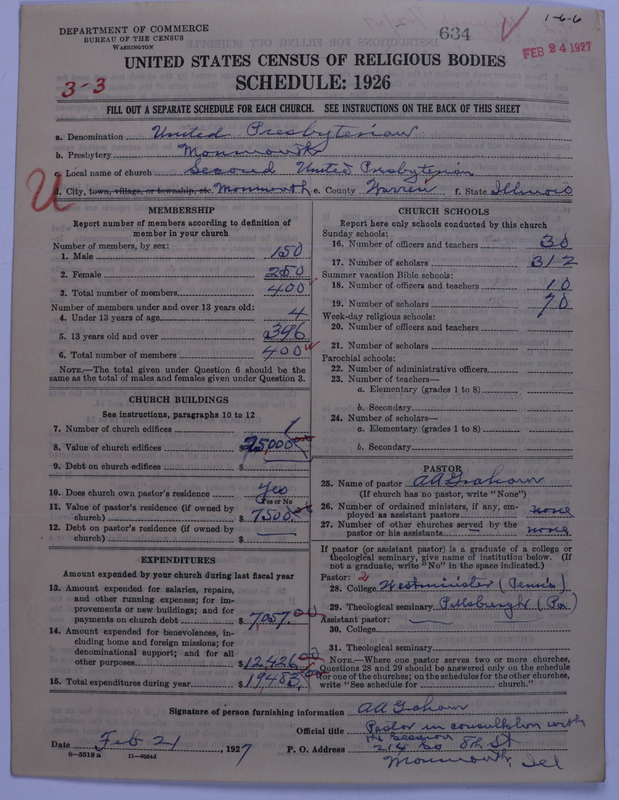 1-6-6
DEPARTMENT OF COMMERCE
BUREAU OF THE CENSUS
WASHINGTON
634
FEB 24 1927
UNITED STATES CENSUS OF RELIGIOUS BODIES
SCHEDULE: 1926
3-3
FILL OUT A SEPARATE SCHEDULE FOR EACH CHURCH. SEE INSTRUCTIONS ON THE BACK OF THIS SHEET
a. Denomination United Presbyterian
b. Presbytery Monmouth
c. Local name of church Second United Presbyterian
d. City, town, village, or township, etc Monmouth e. County Warren f. State Illinois
U
MEMBERSHIP
Report number of members according to definition of
member in your church
Number of members, by sex:
1. Male 150
2. Female 250
3. Total number of members 400
Number of members under and over 13 years old:
4. Under 13 years of age 4
5. 13 years old and over 396
6. Total number of members 400
NOTE.—The total given under Question 6 should be the
same as the total of males and females given under Question 3.
CHURCH BUILDINGS
See instructions, paragraphs 10 to 12
7. Number of church edifices 1
8. Value of church edifices 25,000
9. Debt on church edifices $
10. Does church own pastor's residence Yes
Yes or No
11. Value of pastor's residence (if owned by
church) $ 7500.
12. Debt on pastor's residence (if owned by
church) $
EXPENDITURES
Amount expended by your church during last fiscal year
13. Amount expended for salaries, repairs,
and other running expenses; for im-
provements or new buildings; and for
payments on church debt $ 7,057.00
14. Amount expended for benevolences, in-
cluding home and foreign missions; for
denominational support; and for all
other purposes $ 12,426.00
15. Total expenditures during year $ 19,483.00
CHURCH SCHOOLS
Report here only schools conducted by this church
Sunday schools:
16. Number of officers and teachers 30
17. Number of scholars 312
Summer vacation Bible schools:
18. Number of officers and teachers 10
19. Number of scholars 70
Week-day religious schools:
20. Number of officers and teachers
21. Number of scholars
Parochial schools:
22. Number of administrative officers
23. Number of teachers—
a. Elementary (grades 1 to 8)
b. Secondary
24. Number of scholars—
a. Elementary (grades 1 to 8)
b. Secondary
PASTOR
25. Name of pastor AA Graham
(If church has no pastor, write "None")
26. Number of ordained ministers, if any, em-
ployed as assistant pastors none
27. Number of other churches served by the
pastor or his assistants none
If pastor (or assistant pastor) is a graduate of a college or
theological seminary, give name of institution below. (If
not a graduate, write "No" in the space indicated.)
Pastor: 2
28. College Westminister (Penna)
29. Theological seminary Pittsburgh (Pa)
Assistant pastor:
30. College
31. Theological seminary
NOTE.—Where one pastor serves two or more churches,
Questions 28 and 29 should be answered only on the schedule
for one of the churches; on the schedules for the other churches,
write "See schedule for church."
Signature of person furnishing information AA Graham
Official title Pastor in consultation with
the Session
Date Feb 21, 1927 P. O. Address 214 So 8th St
Monmouth, Ill
8—5518 a 11—9264d